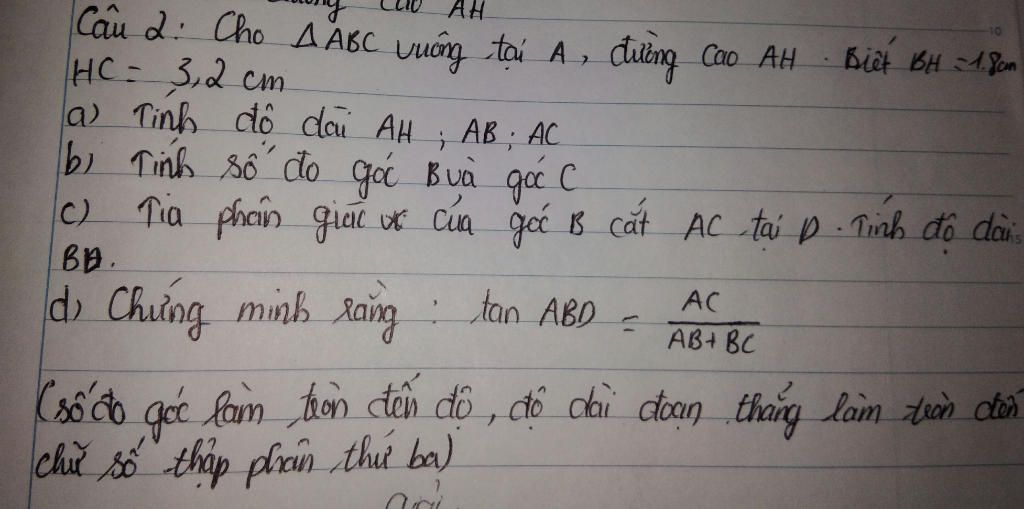 Cao AH
Câu 2: Cho ΔABC vuông tại A, đường cao AH. Biết BH = 1,8cm
HC = 3,2 cm
a) Tính độ dài AH; AB; AC
b) Tính số đo góc B và góc C
c) Tia phân giác của góc B cắt AC tại D. Tính độ dài
BD.
d) Chứng minh rằng: tan ABD = AC / AB + BC
(số đo góc làm tròn đến độ, độ dài đoạn thẳng làm tròn đến
chữ số thập phân thứ ba)